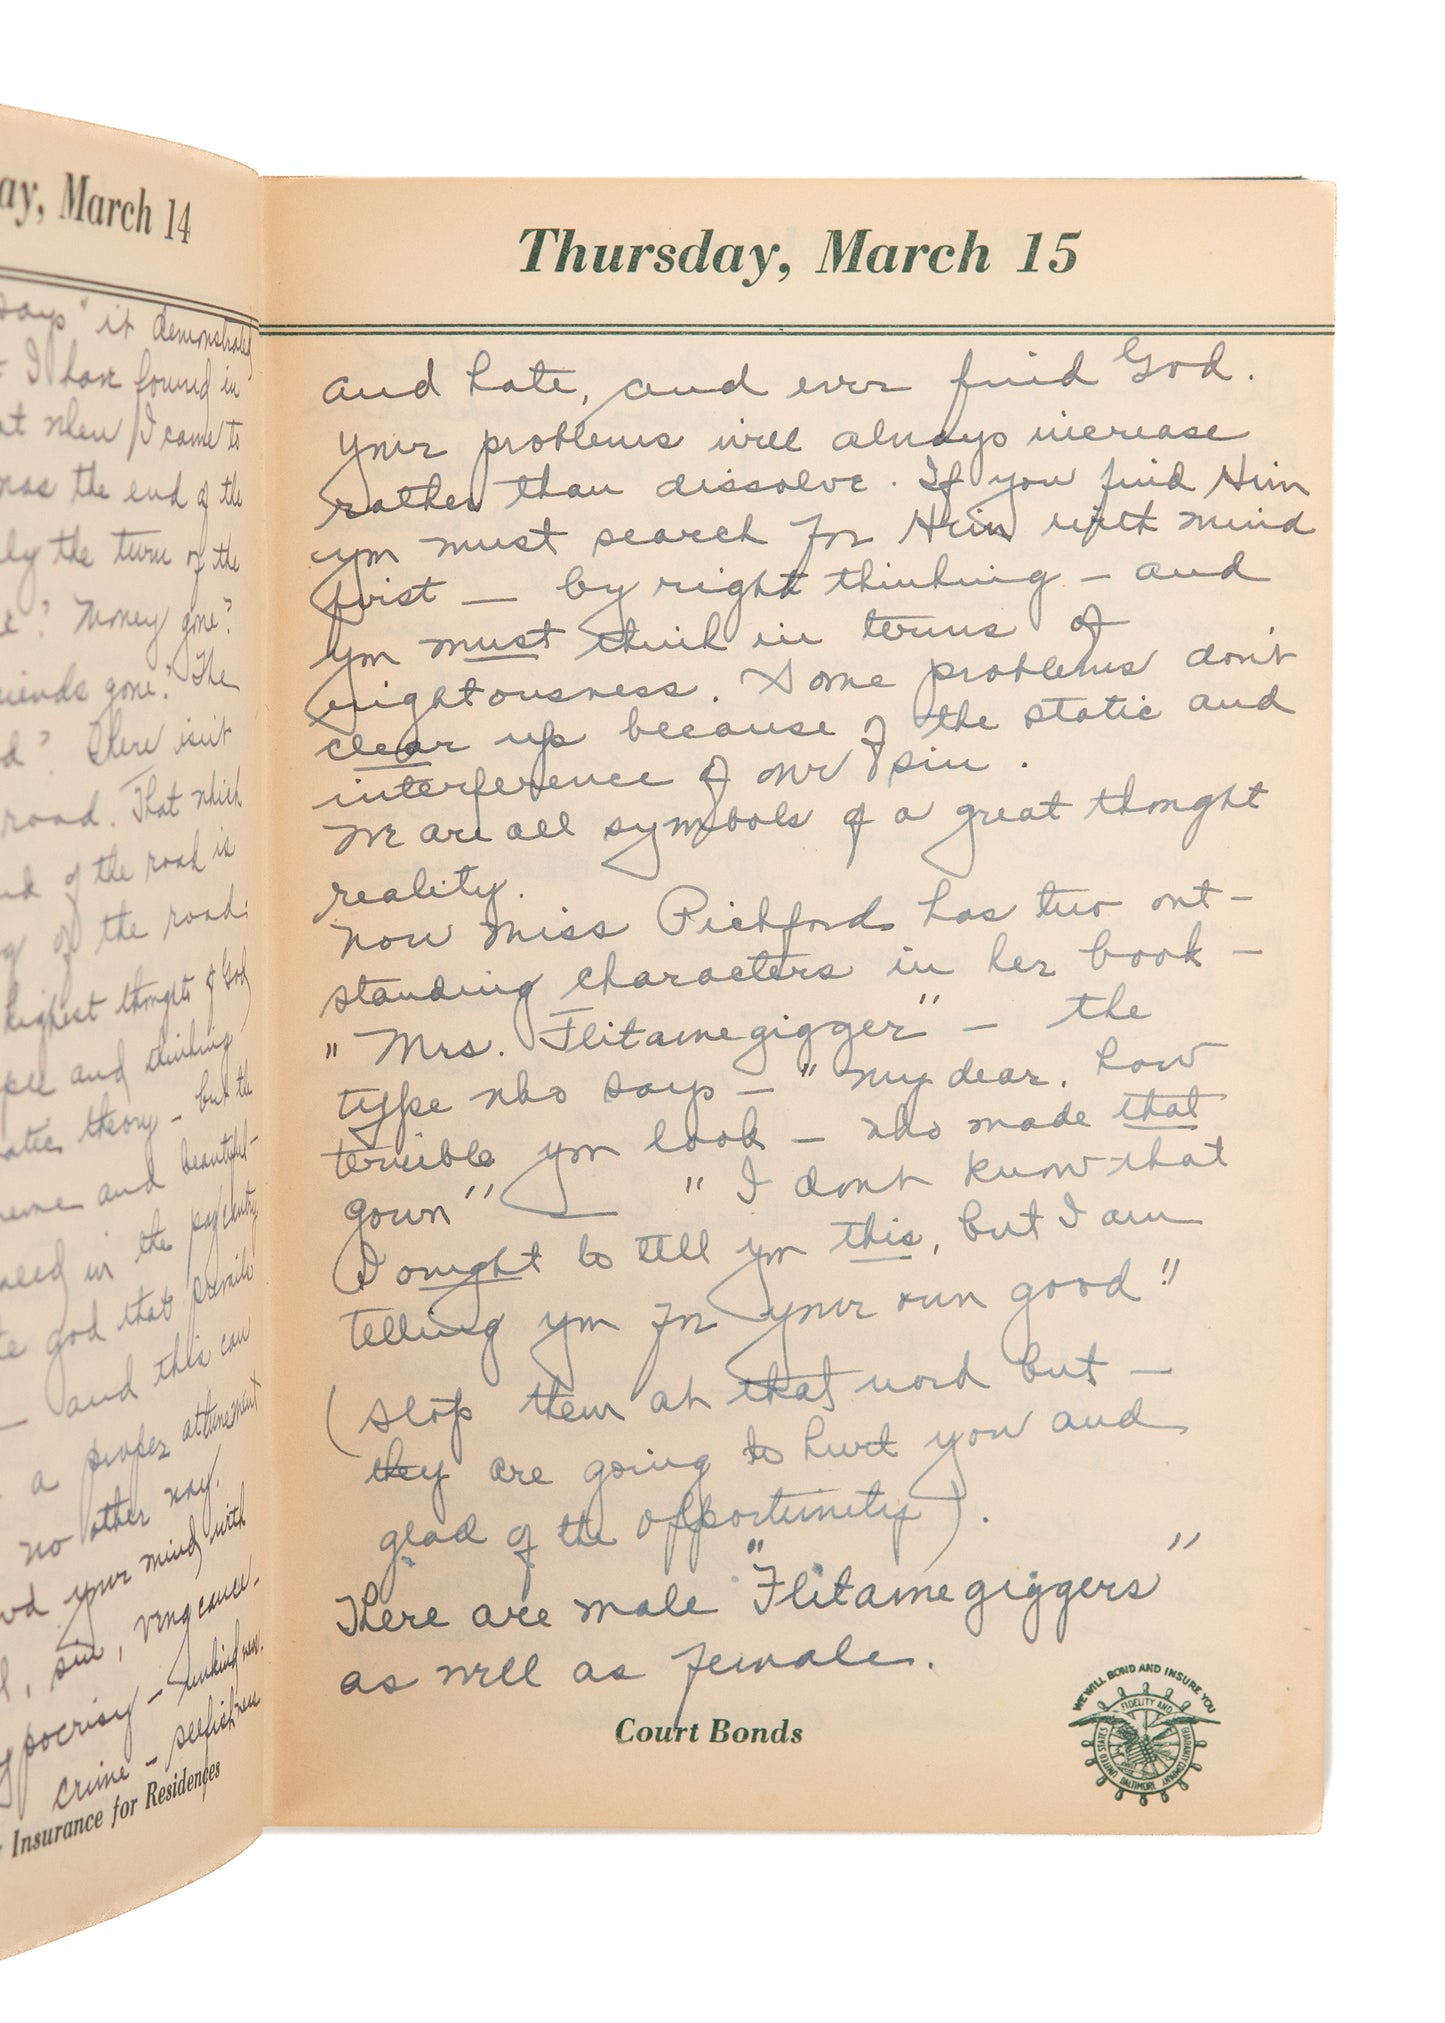 ay, March 14
says" it demonstrated
I have found in
at when I came to
was the end of the
ly the turn of the
e? Money gone?
riends gone? The
d? There isn't
road. That which
end of the road is
g of the road.
highest thoughts of God
ple and thinking
theory - but the
and beautiful -
need in the pageantry
god that prevails
- and this can
a proper attunement
no other way.
your mind with
, sin, vengeance -
ypocrisy -
crime - selfishness
Insurance for Residences
Thursday, March 15
and hate, and ever find God.
Your problems will always increase
rather than dissolve. If you find Him
you must search for Him with mind
first — by right thinking — and
you must think in terms of
rightousness. Some problems don't
clear up because of the static and
interference of our sin.
We are all symbols of a great thought
reality.
Now Miss Pickford has two out-
standing characters in her book —
"Mrs. Flitamegigger" — the
type who says — "my dear, how
terrible you look — who made that
gown" — "I don't know that
I ought to tell you this, but I am
telling you for your own good"
(stop them at that word but —
they are going to hurt you and
glad of the opportunity).
There are male "Flitamegiggers"
as well as female.
Court Bonds
WE WILL BOND AND INSURE YOU
UNITED STATES FIDELITY AND GUARANTY COMPANY
BALTIMORE